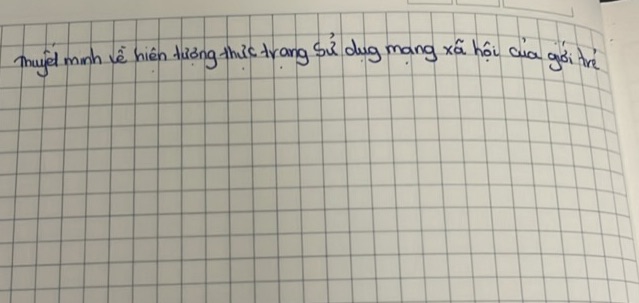 Thuyết minh về hiện tượng thực trạng sử dụg mạng xã hội của giới trẻ